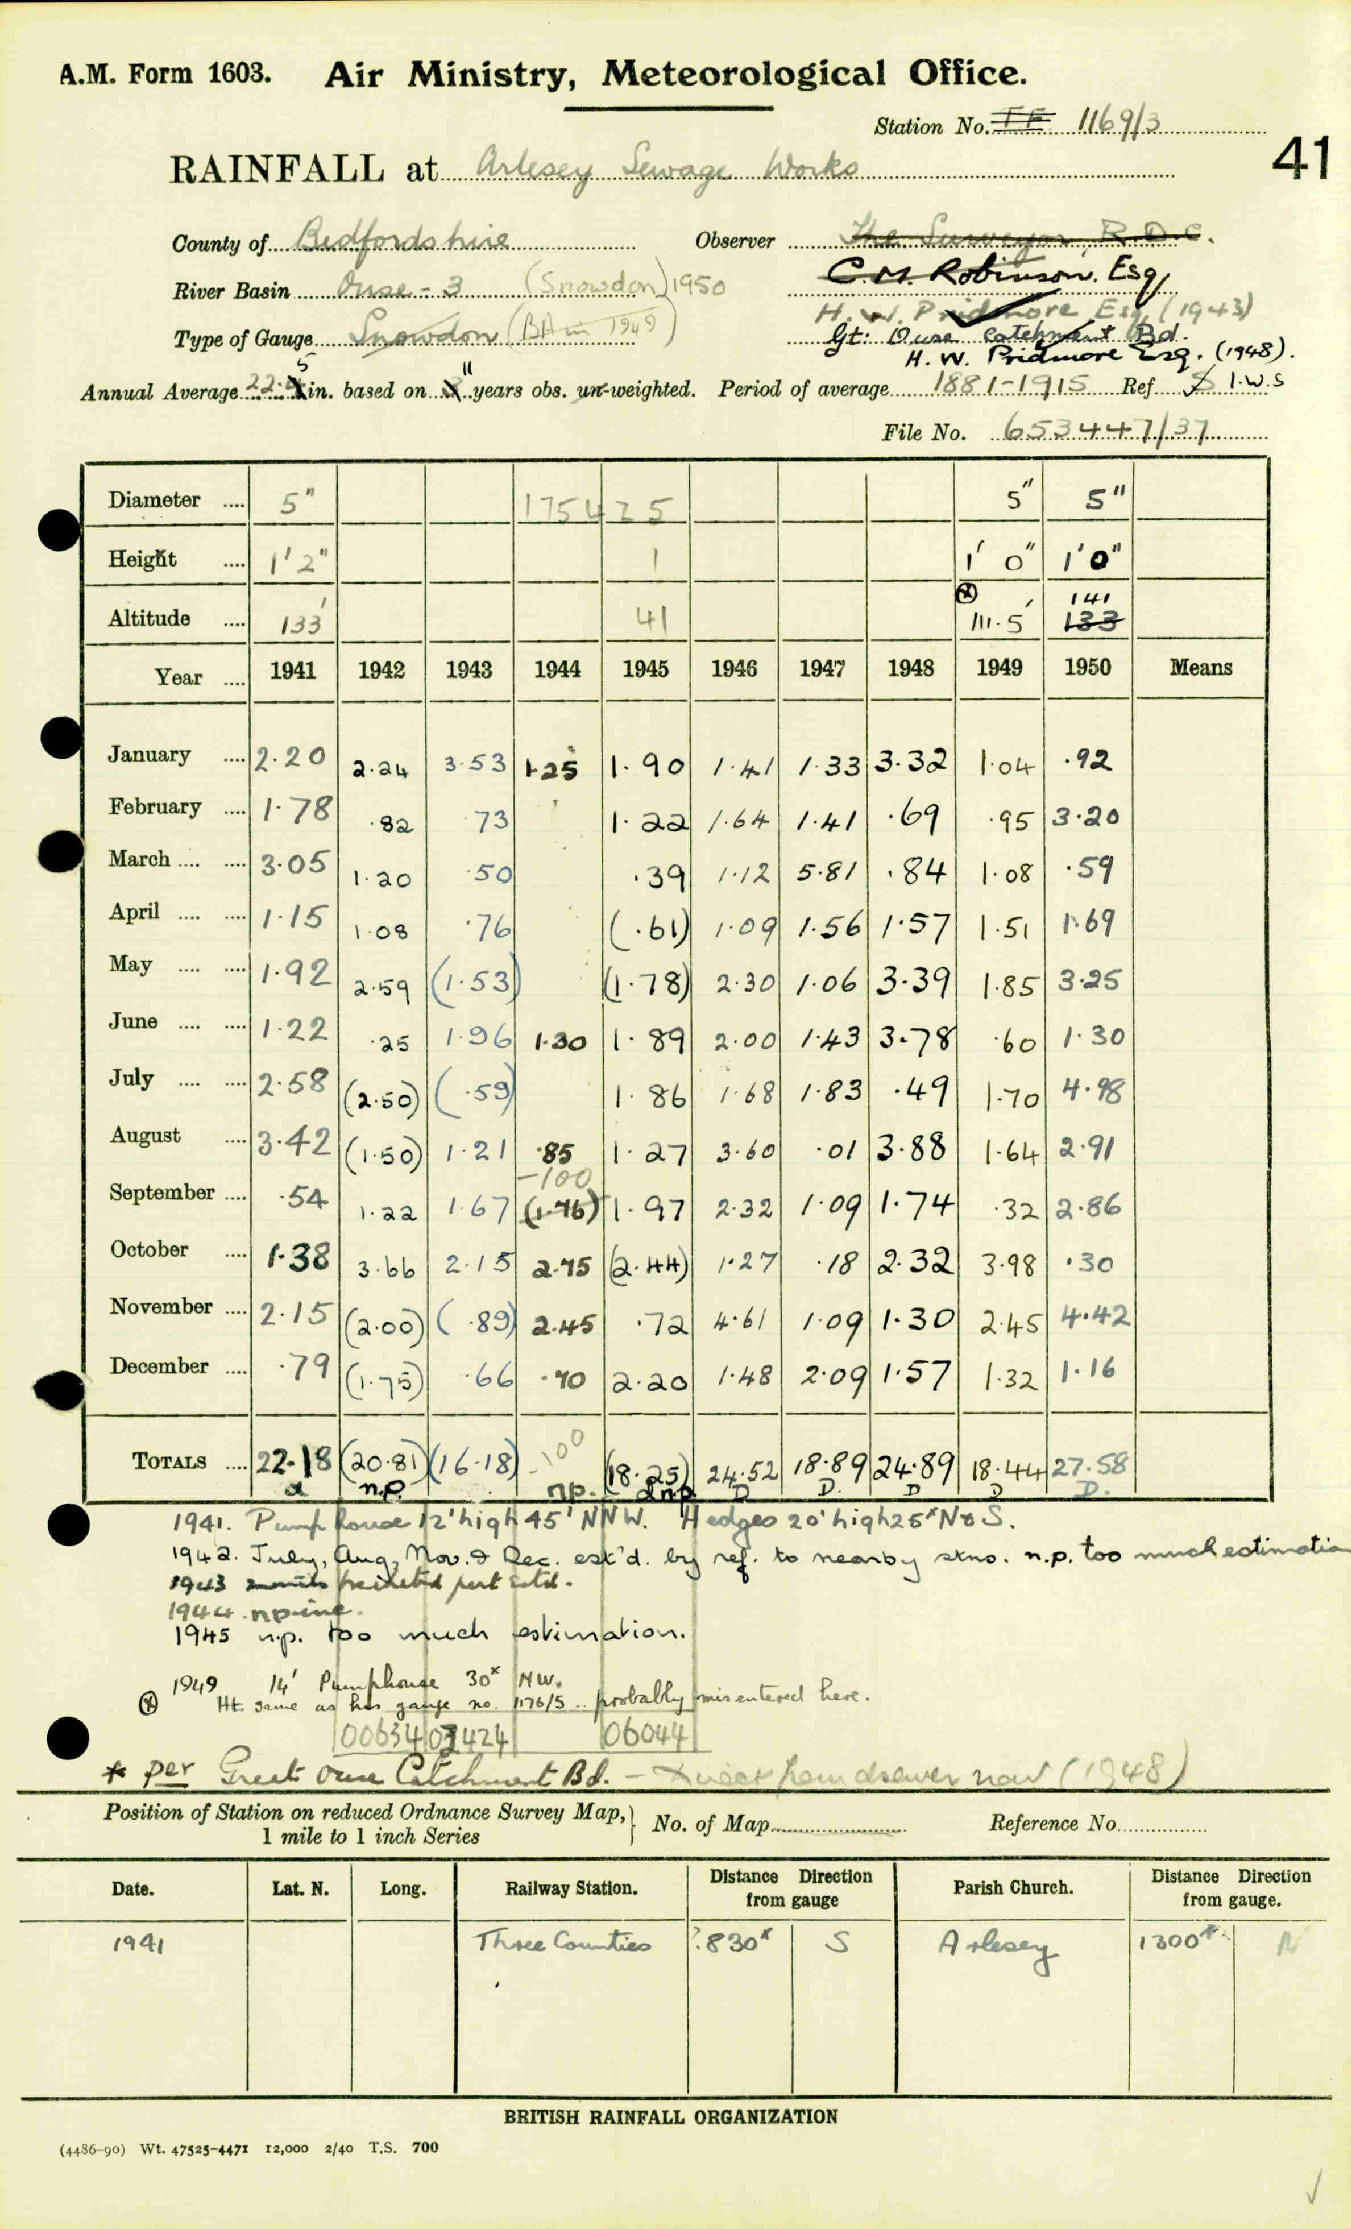 A.M. Form 1603. Air Ministry, Meteorological Office.
Station No. 1169/3
41
RAINFALL at Arlesey Sewage Works
County of Bedfordshire Observer The Surveyor, R.D.C.
C.M. Robinson. Esq
River Basin Ouse - 3 (Snowdon) 1950
H. W. Pridmore Esq (1943)
Type of Gauge Snowdon (BA in 1949) Gt: Ouse Catchment Bd.
H. W. Pridmore Esq. (1948).
Annual Average 22. 5 in. based on 11 years obs. un-weighted. Period of average 1881-1915 Ref S I.W.S
File No. 653447/37
Diameter .... 5" 175425 5" 5"
Height .... 1'2" 1 1' 0" 1'0"
Altitude .... 133' 41 ⊗ 111.5' 141 133
Year .... 1941 1942 1943 1944 1945 1946 1947 1948 1949 1950 Means
January .... 2.20 2.24 3.53 1.25 1.90 1.41 1.33 3.32 1.04 .92
February .... 1.78 .82 .73 1.22 1.64 1.41 .69 .95 3.20
March .... .... 3.05 1.20 .50 .39 1.12 5.81 .84 1.08 .59
April .... .... 1.15 1.08 .76 (.61) 1.09 1.56 1.57 1.51 1.69
May .... .... 1.92 2.59 (1.53) (1.78) 2.30 1.06 3.39 1.85 3.25
June .... .... 1.22 .25 1.96 1.30 1.89 2.00 1.43 3.78 .60 1.30
July .... .... 2.58 (2.50) (.59) 1.86 1.68 1.83 .49 1.70 4.98
August .... 3.42 (1.50) 1.21 .85 1.27 3.60 .01 3.88 1.64 2.91
-100
September .... .54 1.22 1.67 (1.76) 1.97 2.32 1.09 1.74 .32 2.86
October .... 1.38 3.66 2.15 2.75 (2.44) 1.27 .18 2.32 3.98 .30
November .... 2.15 (2.00) (.89) 2.45 .72 4.61 1.09 1.30 2.45 4.42
December .... .79 (1.75) .66 .70 2.20 1.48 2.09 1.57 1.32 1.16
TOTALS .... 22.18 (20.81) (16.18) -100 (18.25) 24.52 18.89 24.89 18.44 27.58
a n.p. n.p. n.p. D D. D D D.
1941. Pump house 12' high 45' NNW. Hedges 20' high 25x N & S.
1942. July, Aug, Nov. & Dec. est'd. by ref. to nearby stns. n.p. too much estimation
1943 months bracketed part estd.
1944. np-inc.
1945 n.p. too much estimation.
1949 14' Pumphouse 30x NW.
⊗ Ht. same as his gauge no. 1176/5 .. probably misentered here.
00634 02424 06044
* per Great Ouse Catchment Bd. - direct from observer now (1948)
Position of Station on reduced Ordnance Survey Map,} No. of Map Reference No.
1 mile to 1 inch Series
Date. Lat. N. Long. Railway Station. Distance Direction from gauge Parish Church. Distance Direction from gauge.
1941 Three Counties ?830x S Arlesey 1300x N
BRITISH RAINFALL ORGANIZATION
(4486-90) Wt. 47525-4471 12,000 2/40 T.S. 700